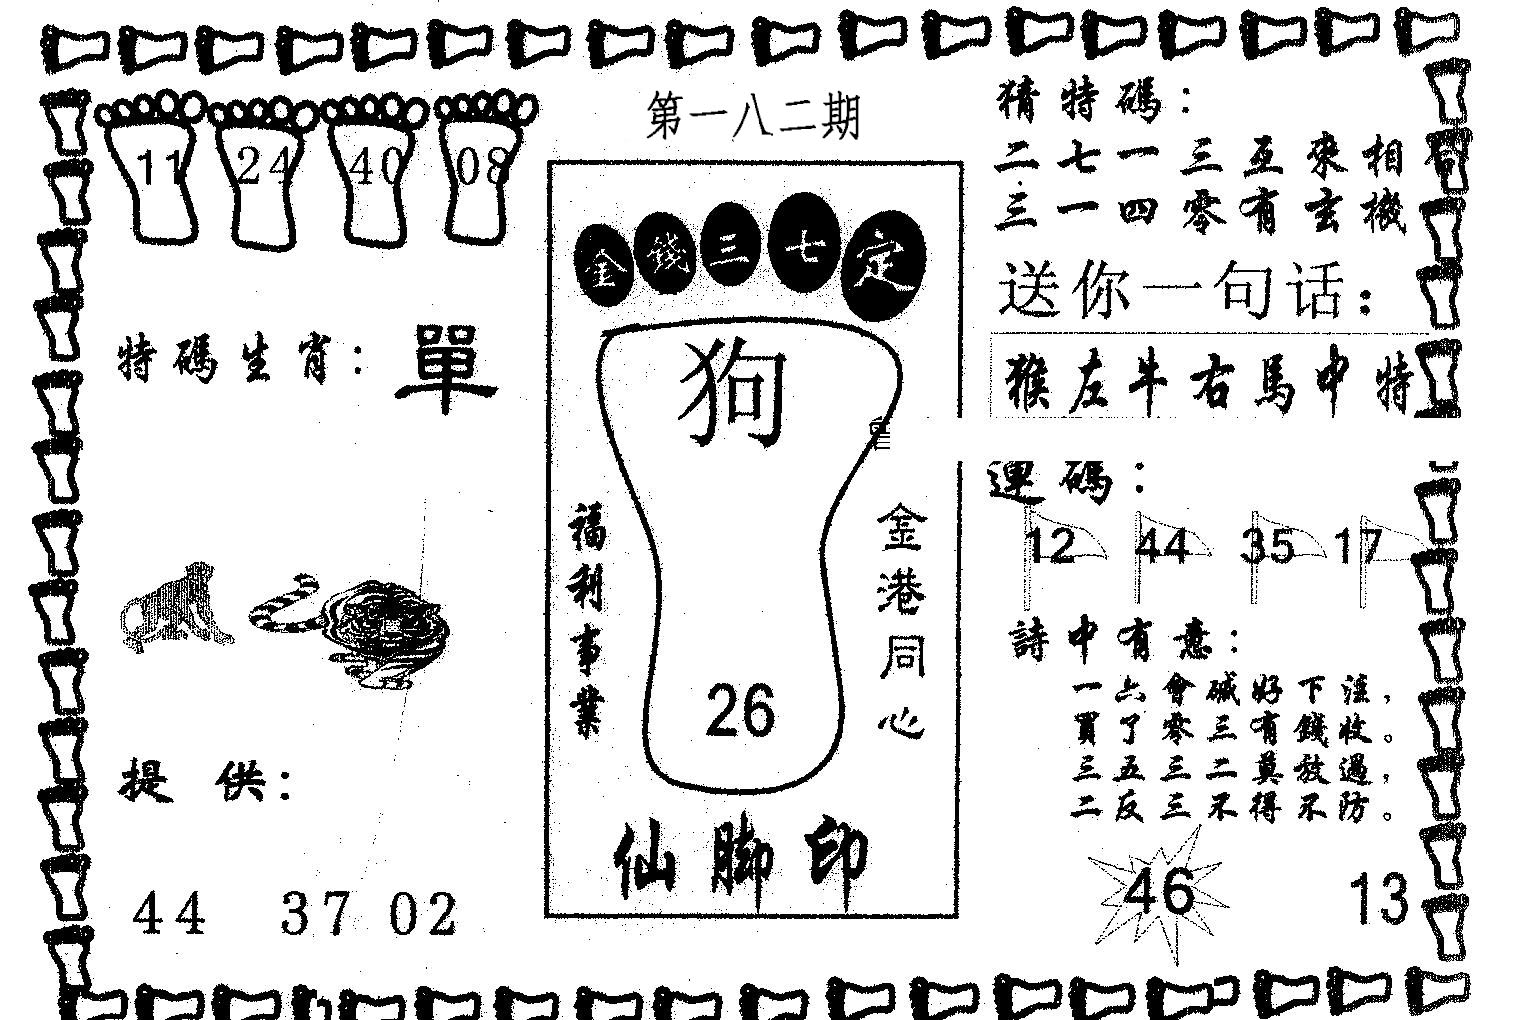 第一八二期
11 24 40 08
特碼生肖：單
提供：
44 37 02
金錢三七定
狗
福利事業
金港同心
26
仙脚印
猜特碼：
二七一三互來相
三一四零有玄機
送你一句话：
猴左牛右馬中特
連碼：
12 44 35 17
詩中有意：
一六會碱好下注，
買了零三有錢收。
三五三二莫放過，
二反三不得不防。
46 13